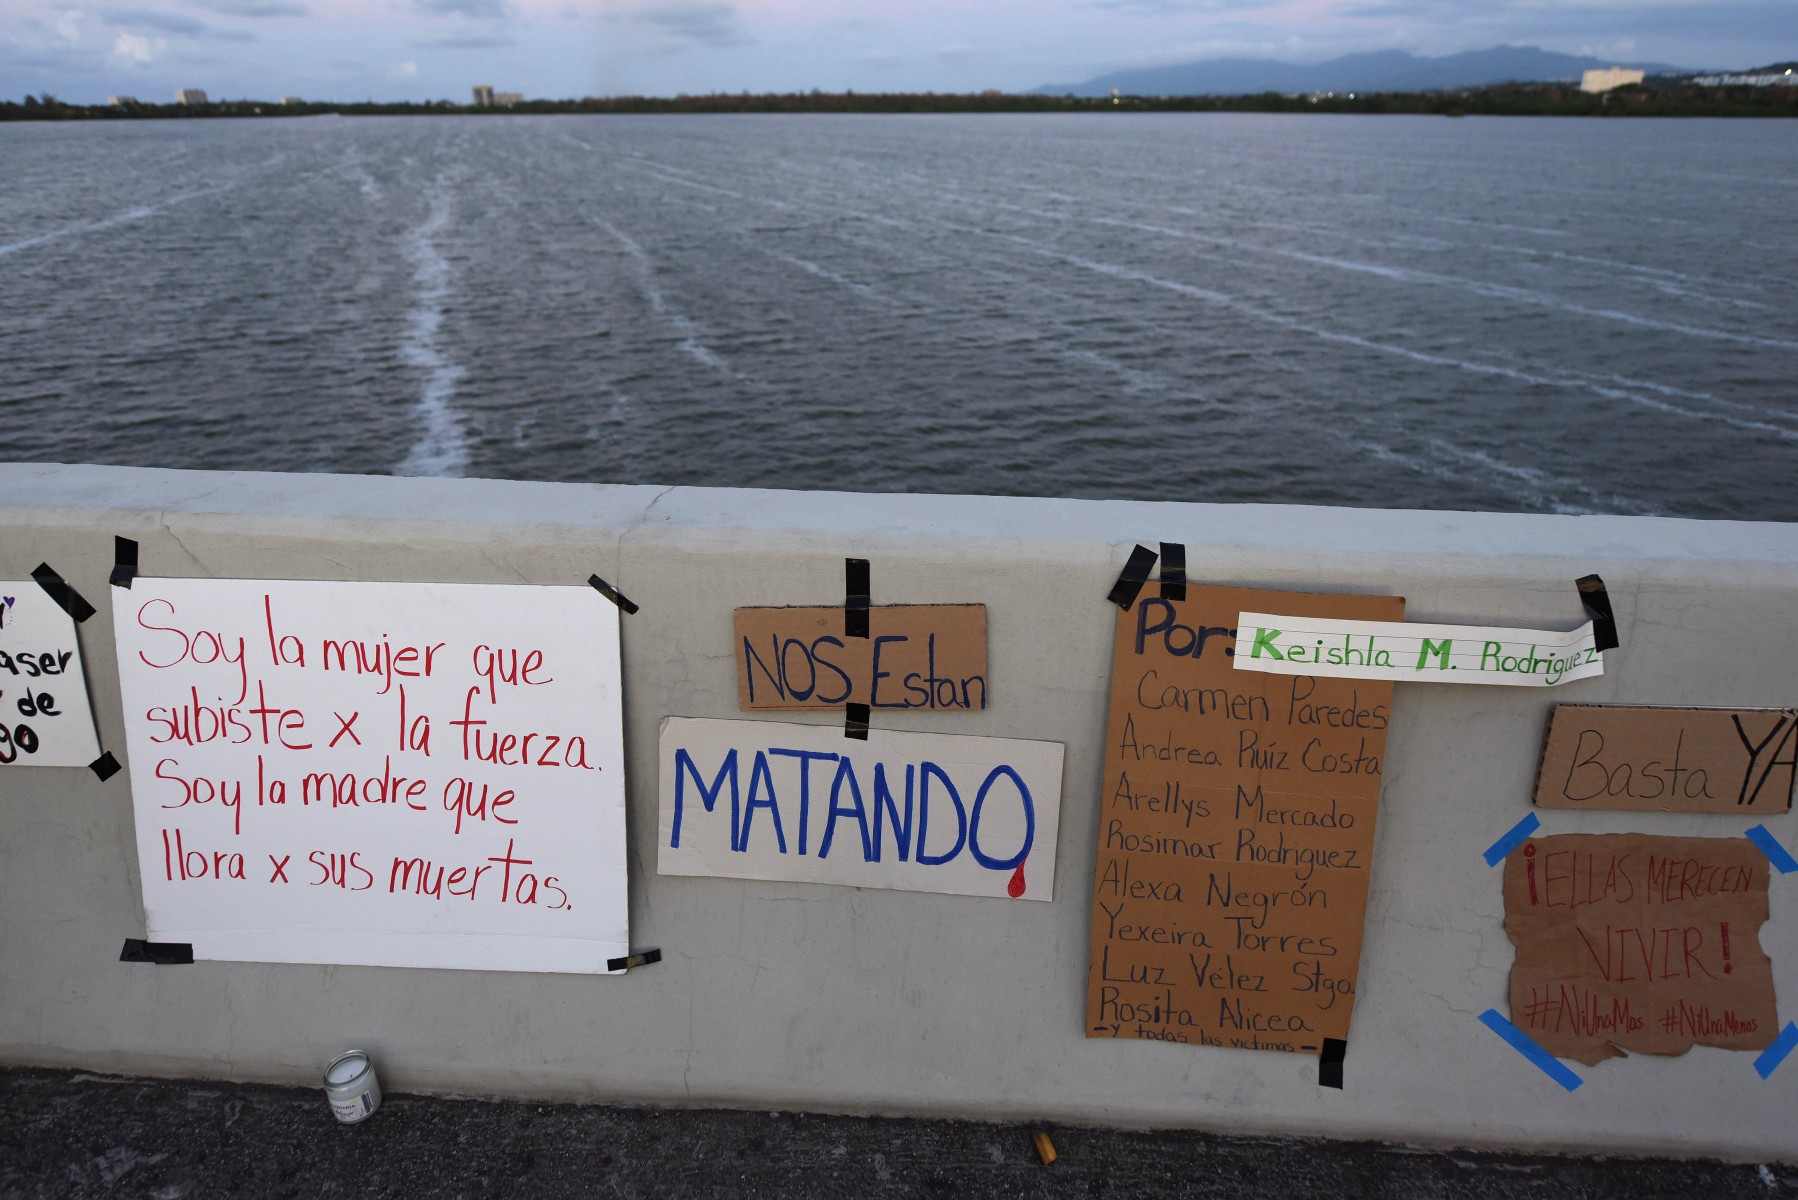 de
Soy la mujer que
subiste x la fuerza.
Soy la madre que
llora x sus muertas.
NOS Estan
MATANDO
Por:
Keishla M. Rodriguez
Carmen Paredes
Andrea Ruíz Costa
Arellys Mercado
Rosimar Rodriguez
Alexa Negrón
Yexeira Torres
Luz Vélez Stgo
Rosita Alicea
- y todas las víctimas -
Basta YA
¡ELLAS MERECEN
VIVIR!
#NiUnaMas #NiUnaMenos